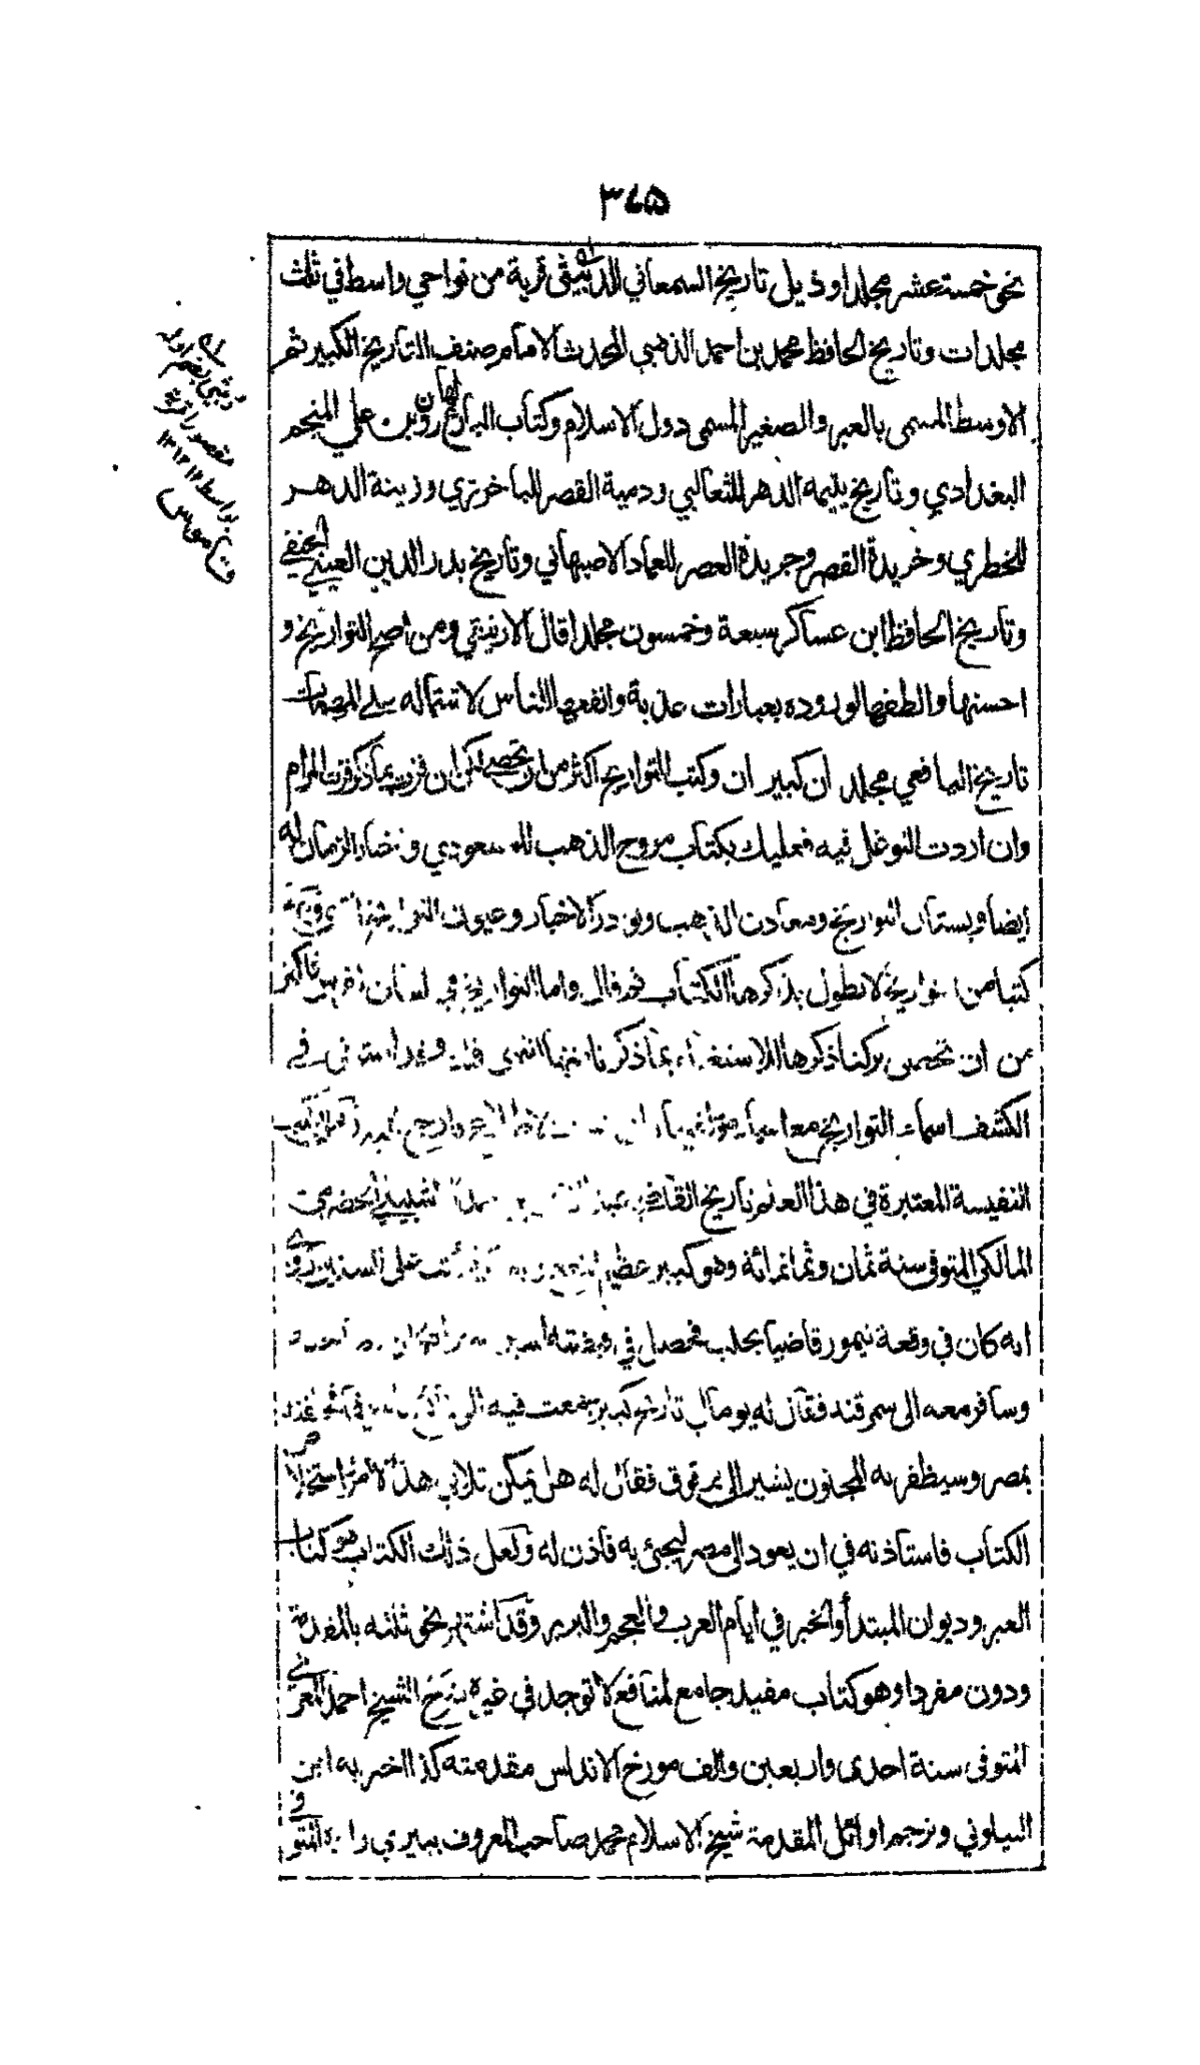 ٣٤٥
نحو خمسة عشر مجلدا وذيل تاريخ السمعاني الدبيثي قرية من نواحي واسط في ثلث
مجلدات وتاريخ الحافظ محمد بن احمد الذهبي المحدث الامام صنف التاريخ الكبير ثم
الاوسط المسمى بالعبر والصغير المسمى دول الاسلام وكتاب البارع لهارون بن علي المنجم
البغدادي وتاريخ يتيمه الدهر للثعالبي ودمية القصر للباخرزي وزينة الدهر
للخطري وخريدة القصر وجريدة العصر للعماد الاصبهاني وتاريخ بدر الدين العيني الحنفي
وتاريخ الحافظ ابن عساكر سبعة وخمسون مجلدا قال الارنيقي ومن اصح التواريخ و
احسنها والطفها لوروده بعبارات عذبة وانفعها للناس لاشتماله على المهمات
تاريخ اليافعي مجلد ان كبير ان وكتب التواريخ اكثر من ان تحصى لكن ان فزت بما ذكر فزت المرام
وان اردت التوغل فيه فعليك بكتاب مروج الذهب للمسعودي واخبار الزمان له
ايضا وبستان التواريخ ومعادن الذهب ونوادر الاخبار وعيون التواريخ
كتبا من التواريخ لا نطول بذكرها الكتاب ثم قال واما التواريخ في لسان الفرس فاكثر
من ان تحصى تركنا ذكرها للاستغناء بما ذكرنا منها انتهى قلت وقد استوفى في
الكشف اسماء التواريخ مع اسماء مؤلفيها
النفيسة المعتبرة في هذا العلم تاريخ القاضي عبد الحضرمي
المالكي المتوفى سنة ثمان وثمانمائة وهو كبير عظيم النفع
انه كان في وقعة تيمور قاضيا بحلب فحصل في قبضته
وسافر معه الى سمرقند فقال له يوما لي تاريخ كبير جمعت فيه
بمصر وسيظفر به المجنون يشير الى برقوق فقال له هل يمكن تلافي هذا الامر واستخلاص
الكتاب فاستاذنه في ان يعود الى مصر ليجئ به فاذن له ولعل ذلك الكتاب هو كتاب
العبر وديوان المبتدأ والخبر في ايام العرب والعجم والبربر وقد اشتهر نحو ثلثه بالمقدمة
ودون مفردا وهو كتاب مفيد جامع لمنافع لا توجد في غيره الشيخ احمد المغربي
المتوفى سنة احدى واربعين والف مورخ الاندلس مقدمته كذا اخبر به ابن
البيلوني وترجم اوائل المقدمة شيخ الاسلام محمد صاحب المعروف ببيري زاده المتوفى